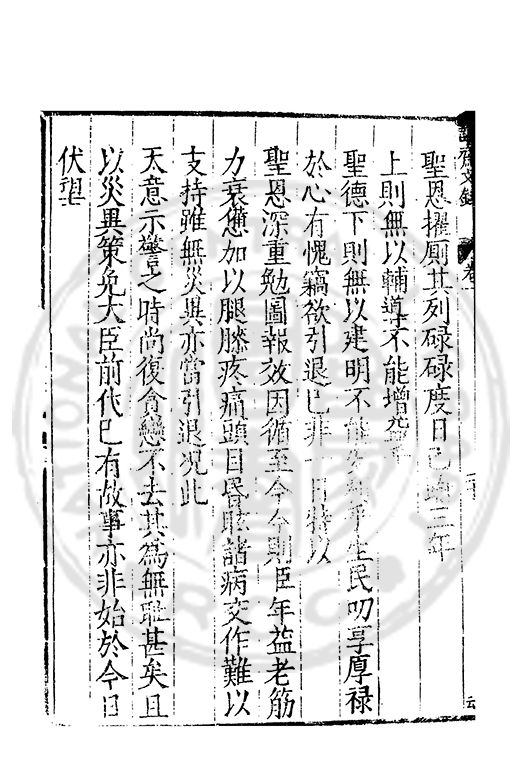 聖恩擢厠其列碌碌度日已三年
上則無以輔導不能增益
聖德下則無以建明不能生民叨享厚祿
於心有愧竊欲引退已非一日特以
聖恩深重勉圖報效因循至今今則臣年益老筋
力衰憊加以腿膝疼痛頭目昏眩諸病交作難以
支持雖無災異亦當引退况此
天意示警之時尚復貪戀不去其爲無耻甚矣且
以災異策免大臣前代已有故事亦非始於今日
伏望